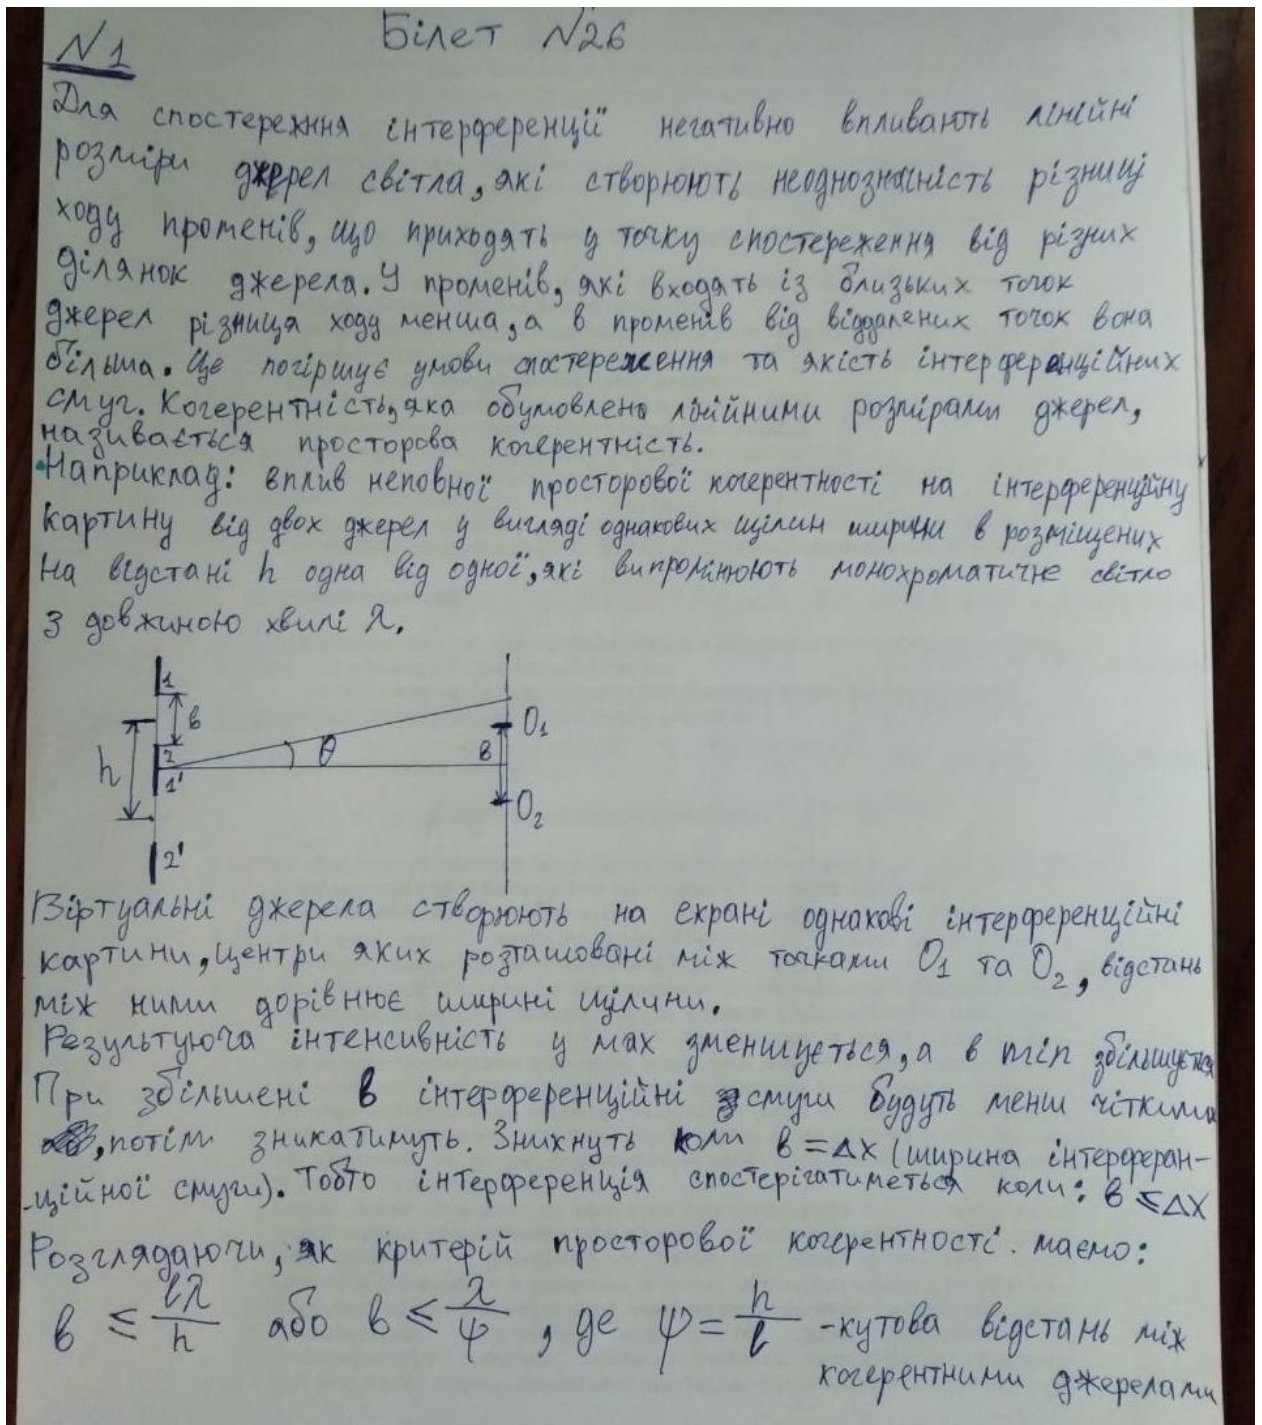 Білет №26
№1
Для спостереження інтерференції негативно впливають лінійні
розміри джерел світла, які створюють неоднозначність різниці
ходу променів, що приходять у точку спостереження від різних
ділянок джерела. У променів, які входять із близьких точок
джерел різниця ходу менша, а в променів від віддалених точок вона
більша. Це погіршує умови спостереження та якість інтерференційних
смуг. Когерентність, яка обумовлена лінійними розмірами джерел,
називається просторова когерентність.
Наприклад: вплив неповної просторової когерентності на інтерференційну
картину від двох джерел у вигляді однакових щілин ширини в розміщених
на відстані h одна від одної, які випромінюють монохроматичне світло
з довжиною хвилі λ.
1
в
h
2
1'
2'
θ
в
O₁
O₂
Віртуальні джерела створюють на екрані однакові інтерференційні
картини, центри яких розташовані між точками O₁ та O₂, відстань
між ними дорівнює ширині щілини.
Результуюча інтенсивність у max зменшується, а в min збільшується
При збільшені в інтерференційні смуги будуть менш чіткими
, потім зникатимуть. Зникнуть коли в = Δx (ширина інтерферен-
-ційної смуги). Тобто інтерференція спостерігатиметься коли: в ≤ Δx
Розглядаючи, як критерій просторової когерентності. маємо:
в ≤ lλ/h або в ≤ λ/ψ, де ψ = h/l - кутова відстань між
когерентними джерелами